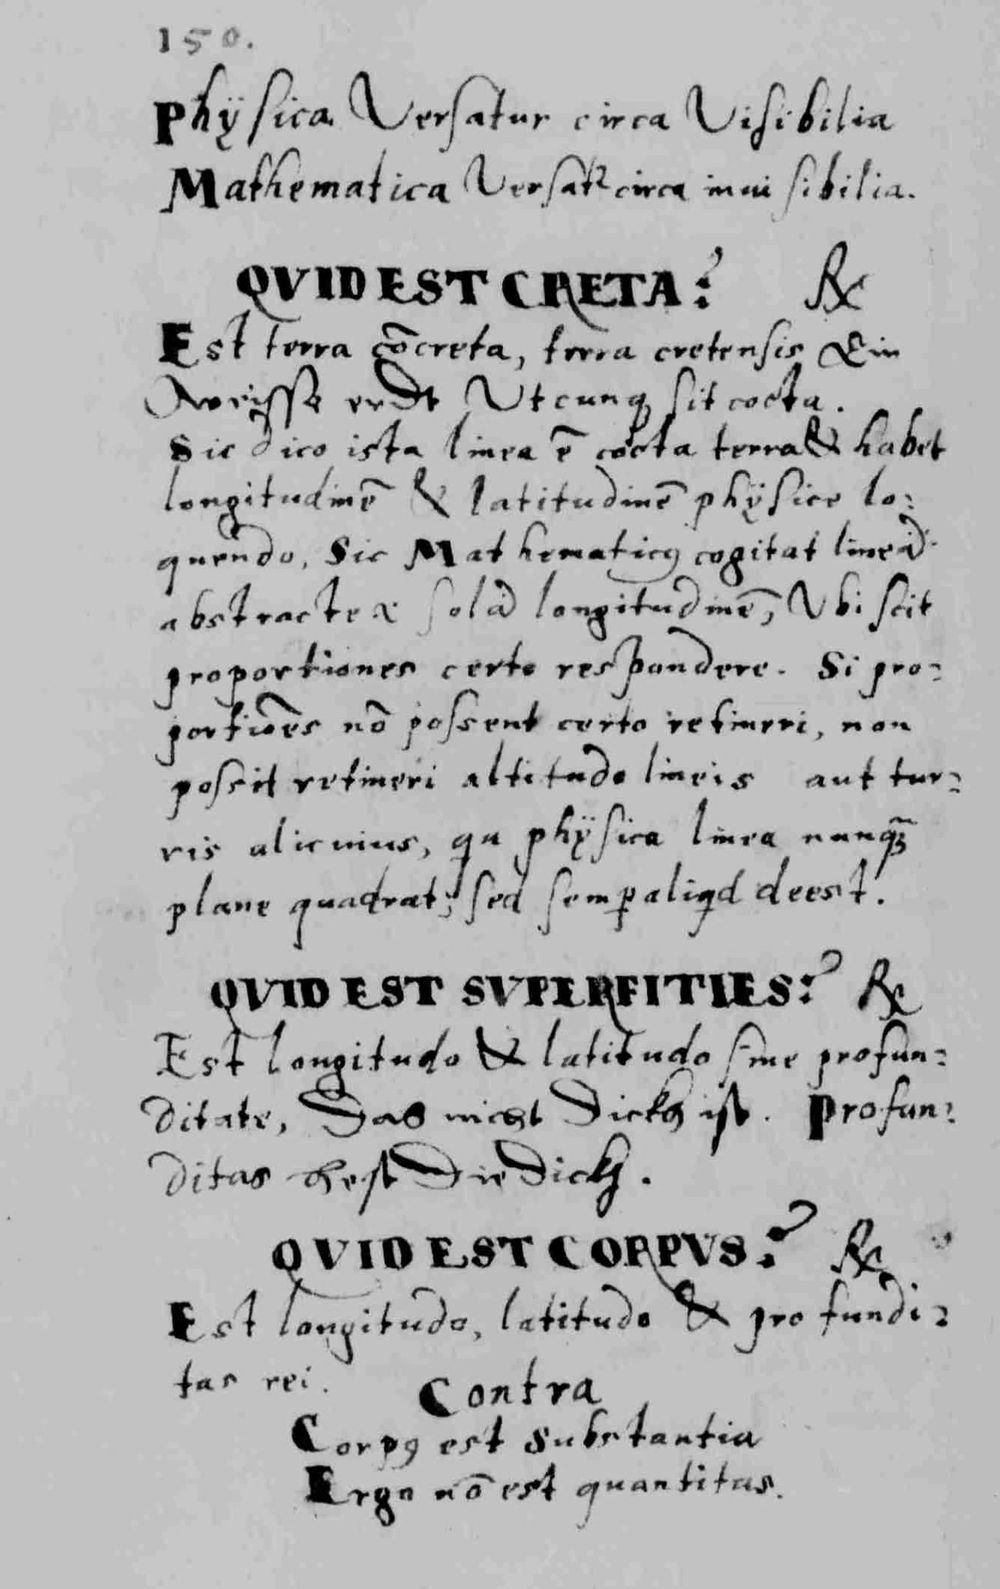 150.
Phÿsica Versatur circa Visibilia
Mathematica Versatr circa inuisibilia.
QVID EST CRETA? ℞
Est terra cōcreta, terra cretensis Ein
Weisse erdt Utcunq sit cocta.
Sic dico ista linea ē cocta terra & habet
longitudinē & latitudinē phÿsice lo:
quendo, Sic Mathematicꝰ cogitat lineā
abstracte & solā longitudinē, Ubi scit
proportiones certo respondere. Si pro:
portiōes nō possent certo retineri, non
possit retineri altitudo lineis aut tur:
ris alicuius, qa phÿsica linea nunqꝫ
plane quadrat; sed semꝑ aliqd deest.
QVID EST SVPERFITIES? ℞
Est longitudo & latitudo sine profun:
ditate, Das nicht Dickh ist. Profun:
ditas hest Die Dickh.
QVID EST CORPVS? ℞
Est longitudo, latitudo & profundi:
tas rei.
Contra
Corpꝰ est substantia
Ergo nō est quantitas.